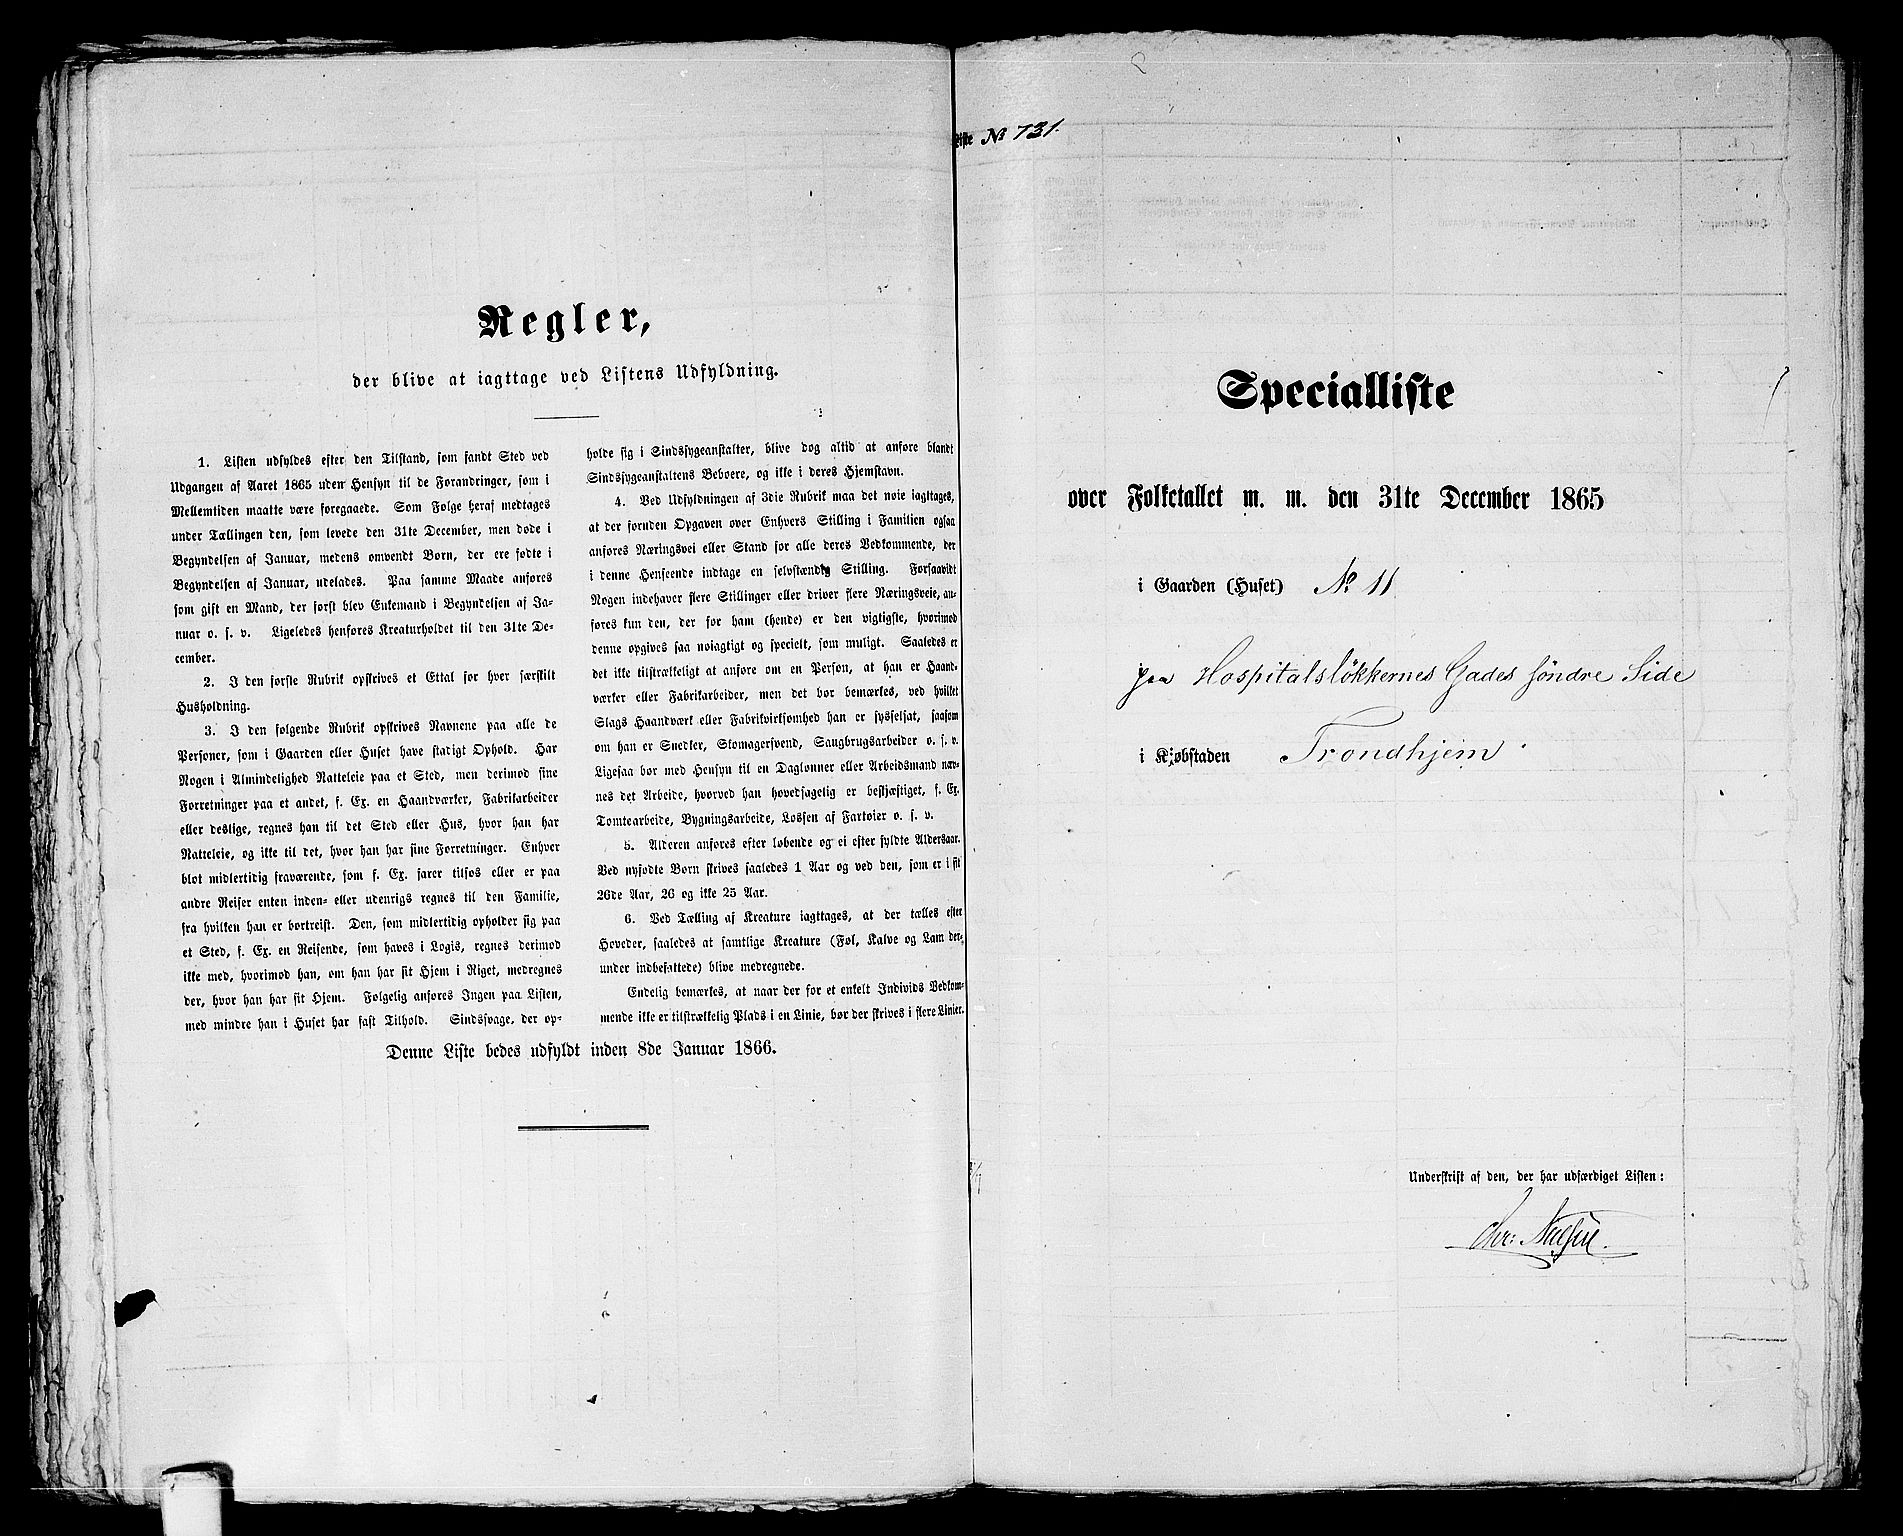 Regler,
der blive at iagttage ved Listens Udfyldning.
1. Listen udfyldes efter den Tilstand, som fandt Sted ved
Udgangen af Aaret 1865 uden Hensyn til de Forandringer, som i
Mellemtiden maatte være foregaaede. Som Følge heraf medtages
under Tællingen den, som levede den 31te December, men døde i
Begyndelsen af Januar, medens omvendt Børn, der ere fødte i
Begyndelsen af Januar, udelades. Paa samme Maade anføres
som gift en Mand, der først blev Enkemand i Begyndelsen af Ja-
nuar o. s. v. Ligeledes henføres Kreaturholdet til den 31te De-
cember.
2. I den første Rubrik opskrives et Ettal for hver særskilt
Husholdning.
3. I den følgende Rubrik opskrives Navnene paa alle de
Personer, som i Gaarden eller Huset have stadigt Ophold. Har
Nogen i Almindelighed Natteleie paa et Sted, men derimod sine
Forretninger paa et andet, f. Ex. en Haandværker, Fabrikarbeider
eller deslige, regnes han til det Sted eller Hus, hvor han har
Natteleie, og ikke til det, hvor han har sine Forretninger. Enhver
blot midlertidig fraværende, som f. Ex. farer tilsøs eller er paa
andre Reiser enten inden- eller udenrigs regnes til den Familie,
fra hvilken han er bortreist. Den, som midlertidig opholder sig paa
et Sted, f. Ex. en Reisende, som haves i Logis, regnes derimod
ikke med, hvorimod han, om han har sit Hjem i Riget, medregnes
der, hvor han har sit Hjem. Følgelig anføres Ingen paa Listen,
med mindre han i Huset har fast Tilhold. Sindssvage, der op-
holde sig i Sindssygeanstalter, blive dog altid at anføre blandt
Sindssygeanstaltens Beboere, og ikke i deres Hjemstavn.
4. Ved Udfyldningen af 3die Rubrik maa det nøie iagttages,
at der foruden Opgaven over Enhvers Stilling i Familien ogsaa
anføres Næringsvei eller Stand for alle deres Vedkommende, der
i denne Henseende indtage en selvstændig Stilling. Forsaavidt
Nogen indehaver flere Stillinger eller driver flere Næringsveie, an-
føres kun den, der for ham (hende) er den vigtigste, hvorimod
denne opgives saa nøiagtigt og specielt, som muligt. Saaledes er
det ikke tilstrækkeligt at anføre om en Person, at han er Haand-
værker eller Fabrikarbeider, men det bør bemærkes, ved hvilket
Slags Haandværk eller Fabrikvirksomhed han er sysselsat, saasom
om han er Snedker, Skomagersvend, Saugbrugsarbeider o. s. v.
Ligesaa bør med Hensyn til en Daglønner eller Arbeidsmand næv-
nes det Arbeide, hvorved han hovedsagelig er beskjæftiget, f. Ex.
Tomtearbeide, Bygningsarbeide, Lossen af Fartøier o. s. v.
5. Alderen anføres efter løbende og ei efter fyldte Aldersaar.
Ved nyfødte Børn skrives saaledes 1 Aar og ved den, som er i sit
26de Aar, 26 og ikke 25 Aar.
6. Ved Tælling af Kreature iagttages, at der tælles efter
Hoveder, saaledes at samtlige Kreature (Føl, Kalve og Lam der-
under indbefattede) blive medregnede.
Endelig bemærkes, at naar der for et enkelt Individs Vedkom-
mende ikke er tilstrækkelig Plads i en Linie, bør der skrives i flere Linier.
Denne Liste bedes udfyldt inden 8de Januar 1866.
Liste № 731.
Specialliste
over Folketallet m. m. den 31te December 1865
i Gaarden (Huset) № 11
paa Hospitalsløkkernes Gades søndre Side
i Kjøbstaden Trondhjem
Underskrift af den, der har udfærdiget Listen:
Chr: Nielsen.